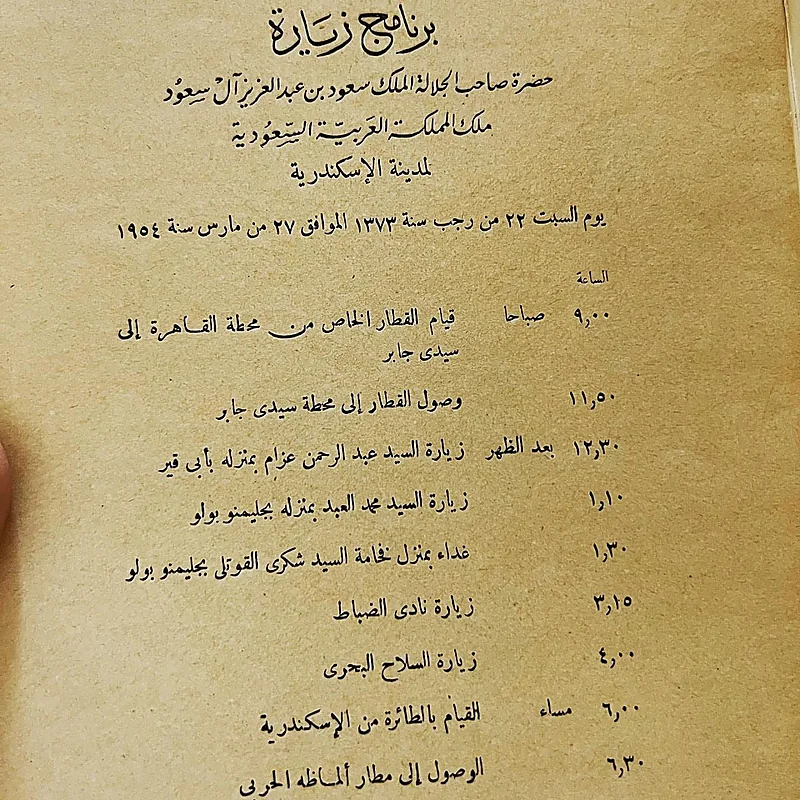 برنامج زيارة
حضرة صاحب الجلالة الملك سعود بن عبد العزيز آل سعود
ملك المملكة العربية السعودية
لمدينة الإسكندرية
يوم السبت ٢٢ من رجب سنة ١٣٧٣ الموافق ٢٧ من مارس سنة ١٩٥٤
الساعة
٩٫٠٠ صباحا قيام القطار الخاص من محطة القاهرة إلى
سيدى جابر
١١٫٥٠ وصول القطار إلى محطة سيدى جابر
١٢٫٣٠ بعد الظهر زيارة السيد عبد الرحمن عزام بمنزله بأبى قير
١٫١٠ زيارة السيد محمد العبد بمنزله بجليمنو بولو
١٫٣٠ غداء بمنزل فخامة السيد شكرى القوتلى بجليمنو بولو
٣٫١٥ زيارة نادى الضباط
٤٫٠٠ زيارة السلاح البحرى
٦٫٠٠ مساء القيام بالطائرة من الإسكندرية
٦٫٣٠ الوصول إلى مطار ألماظه الحربى